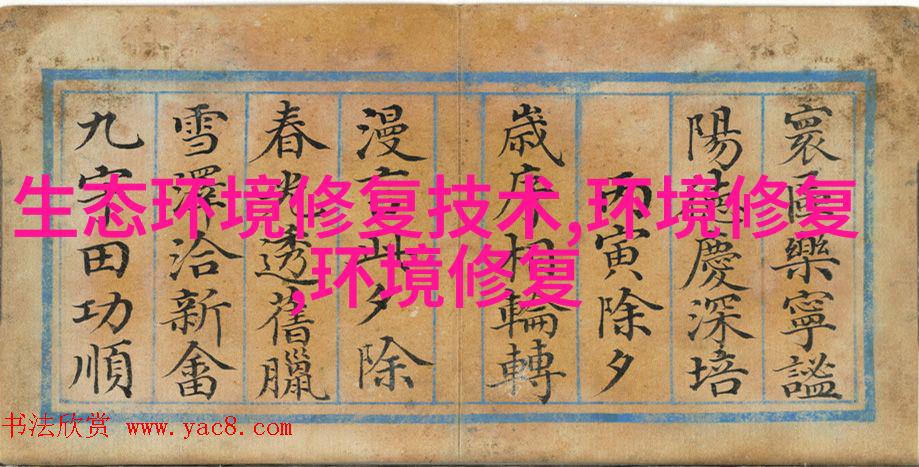 生态环境修复技术,环境修复
,环境修复
寰區樂寧謐
陽慶深培
丙寅除夕
歲序相輪轉
漫言此夕除
春光透舊臘
雪澤洽新畬
九宇田功順
书法欣赏 www.yac8.com